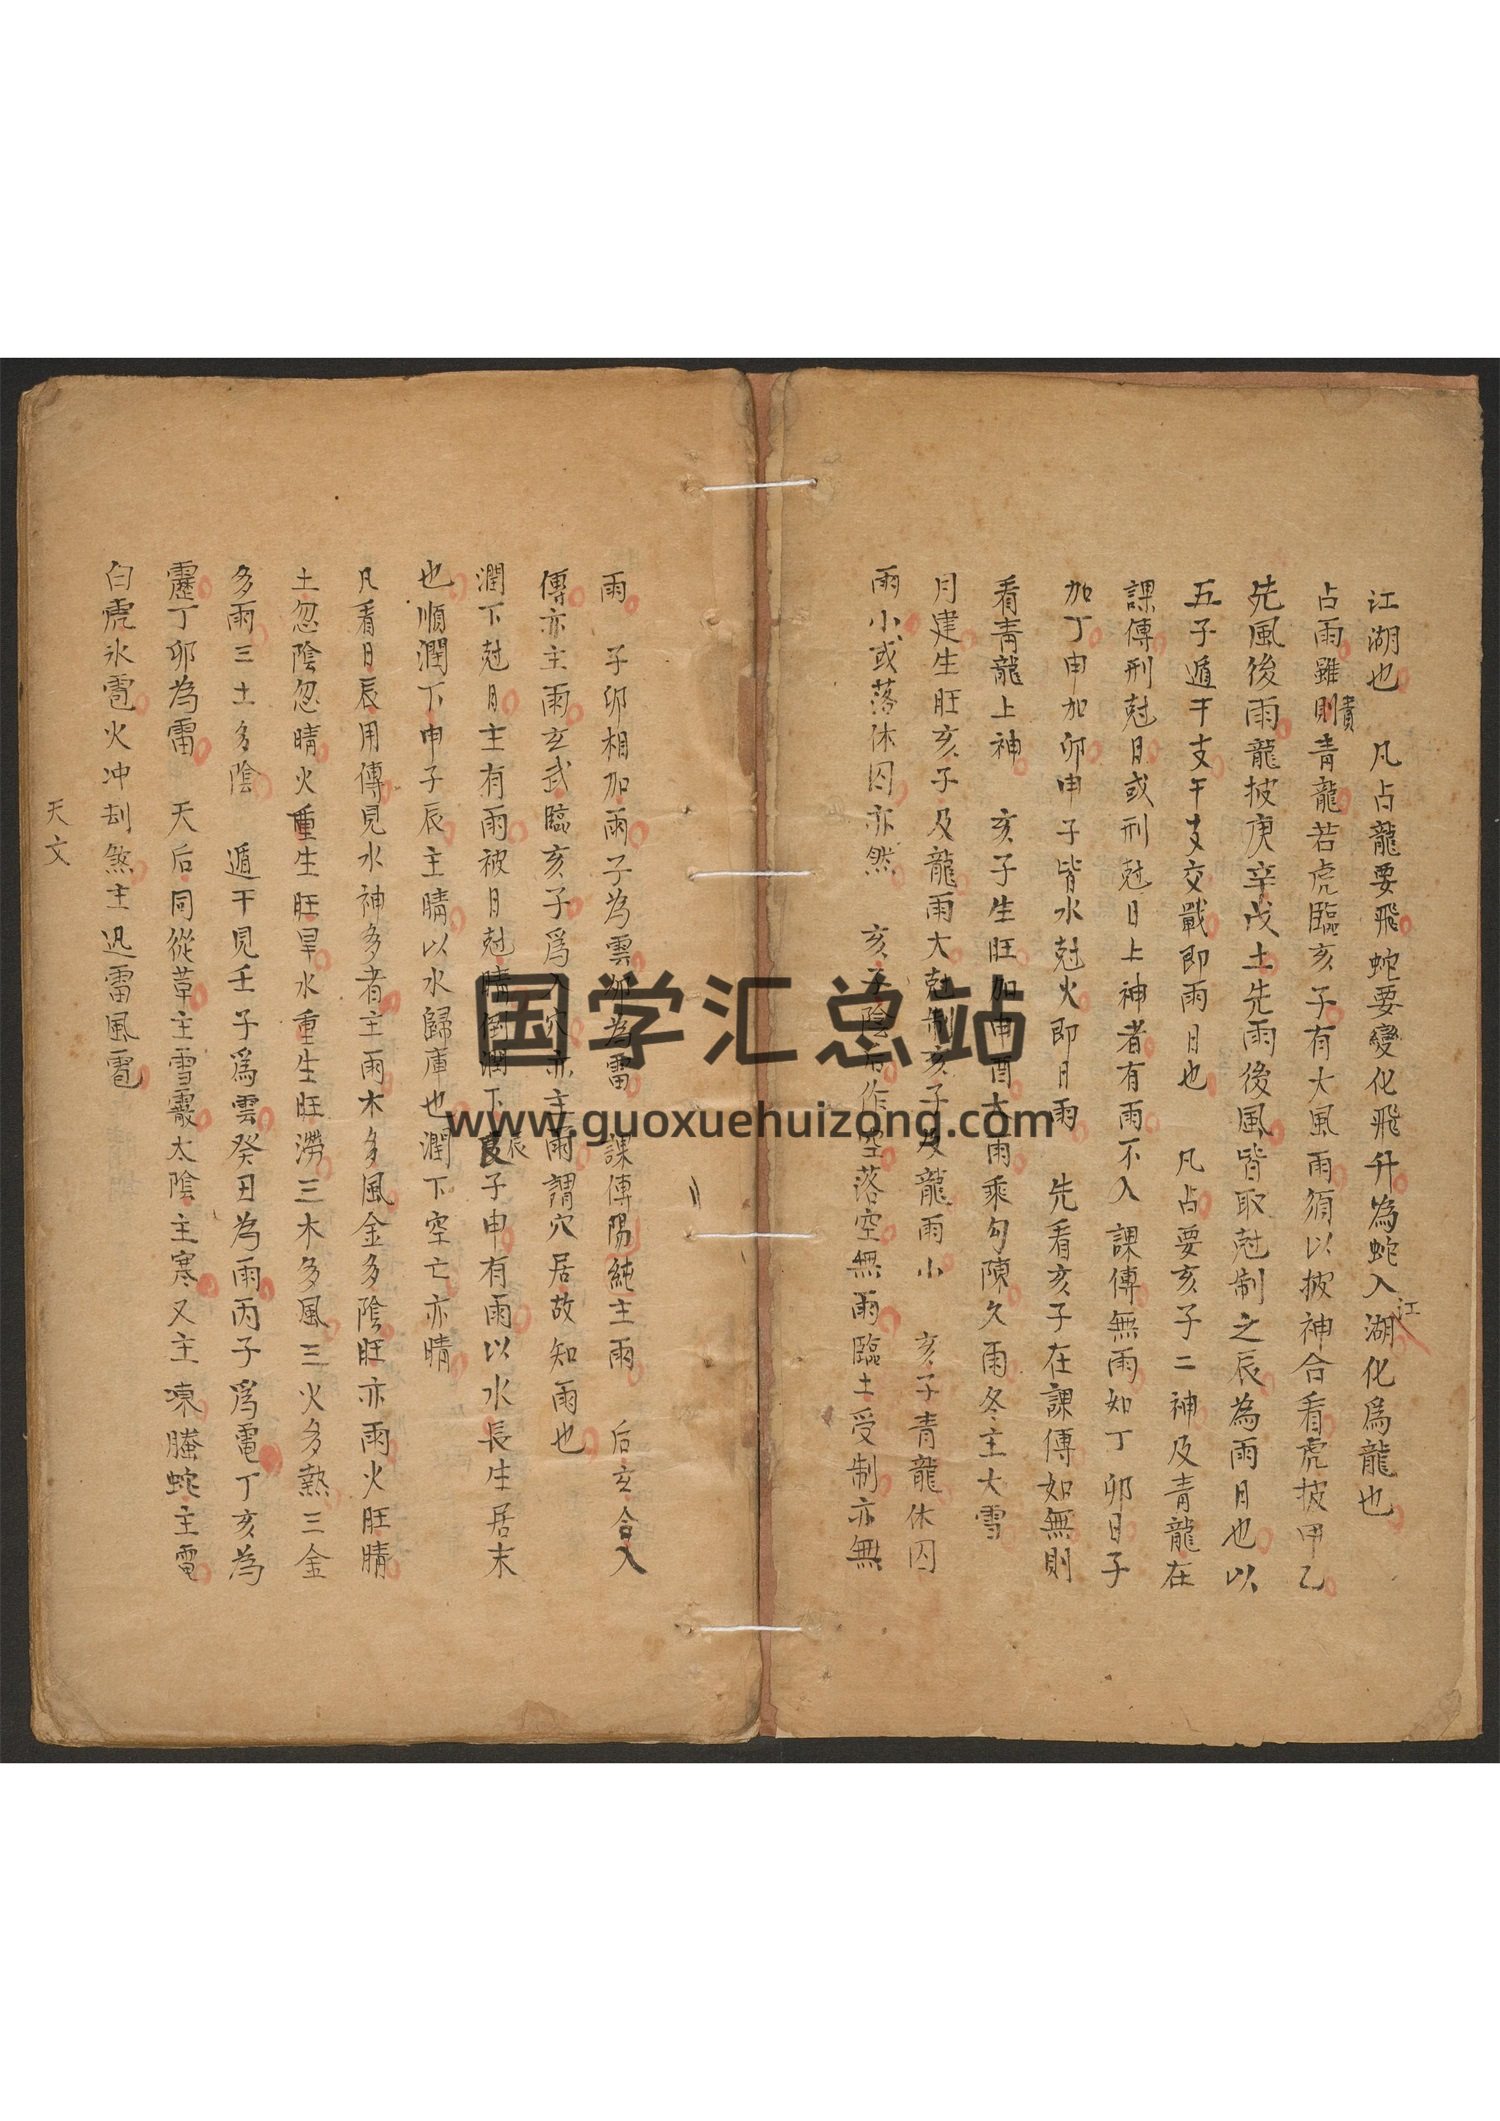 江湖也 凡占龍要飛蛇要變化飛升為蛇入江湖化為龍也
占雨雖則貴青龍若虎臨亥子有大風雨須以披神合看虎披甲乙
先風後雨龍披庚辛戊土先雨後風皆取尅制之辰為雨日也以
五子遁干支干支交戰即雨日也 凡占要亥子二神及青龍在
課傳刑尅日或刑尅日上神者有雨不入課傳無雨如丁卯日子
加丁申加卯申子皆水尅火即日雨 先看亥子在課傳如無則
看青龍上神 亥子生旺加申酉大雨乘勾陳久雨冬主大雪
月建生旺亥子及龍雨大尅制亥子及龍雨小 亥子青龍休囚
雨小或落休囚亦然 亥子陰后作空落空無雨臨土受制亦無
雨 子卯相加雨子為雲卯為雷 課傳陽純主雨 后玄合入
傳亦主雨玄武臨亥子為入穴亦主雨謂穴居故知雨也
潤下尅日主有雨被日尅晴倒潤下辰子申有雨以水長生居末
也順潤下申子辰主晴以水歸庫也潤下空亡亦晴
凡看日辰用傳見水神多者主雨木多風金多陰旺亦雨火旺晴
土忽陰忽晴火重生旺旱水重生旺澇三木多風三火多熱三金
多雨三土多陰 遁干見壬子為雲癸丑為雨丙子為電丁亥為
靂丁卯為雷 天后同從革主雪霰太陰主寒又主凍螣蛇主電
白虎冰雹火冲刧煞主迅雷風雹
天文
国学汇总站
www.guoxuehuizong.com